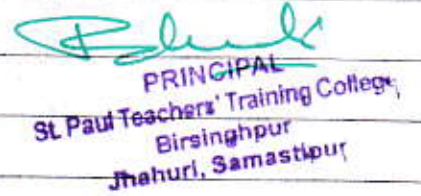 PRINCIPAL
St. Paul Teachers' Training College,
Birsinghpur
Jhahuri, Samastipur